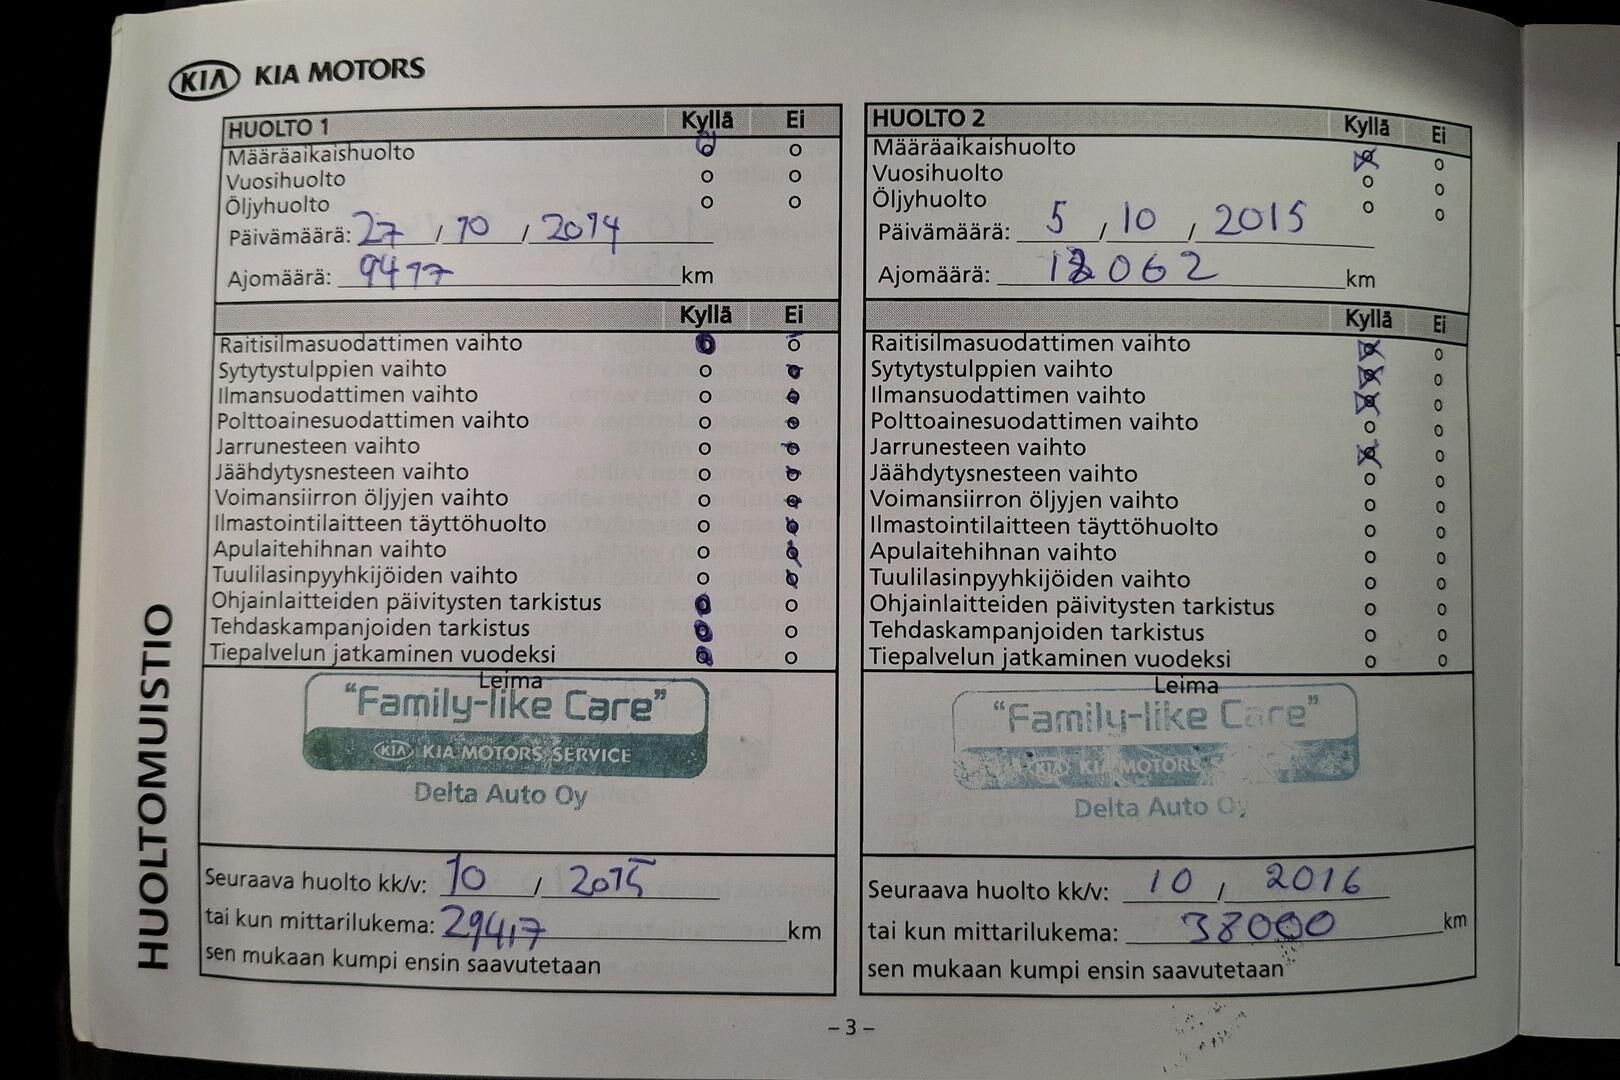 KIA KIA MOTORS
HUOLTOMUISTIO
HUOLTO 1 Kyllä Ei
Määräaikaishuolto
Vuosihuolto
Öljyhuolto
Päivämäärä: 27 / 10 / 2014
Ajomäärä: 9417 km
Kyllä Ei
Raitisilmasuodattimen vaihto
Sytytystulppien vaihto
Ilmansuodattimen vaihto
Polttoainesuodattimen vaihto
Jarrunesteen vaihto
Jäähdytysnesteen vaihto
Voimansiirron öljyjen vaihto
Ilmastointilaitteen täyttöhuolto
Apulaitehihnan vaihto
Tuulilasinpyyhkijöiden vaihto
Ohjainlaitteiden päivitysten tarkistus
Tehdaskampanjoiden tarkistus
Tiepalvelun jatkaminen vuodeksi
Leima
"Family-like Care"
KIA KIA MOTORS SERVICE
Delta Auto Oy
Seuraava huolto kk/v: 10 / 2015
tai kun mittarilukema: 29417 km
sen mukaan kumpi ensin saavutetaan
HUOLTO 2 Kyllä Ei
Määräaikaishuolto
Vuosihuolto
Öljyhuolto
Päivämäärä: 5 / 10 / 2015
Ajomäärä: km
Kyllä Ei
Raitisilmasuodattimen vaihto
Sytytystulppien vaihto
Ilmansuodattimen vaihto
Polttoainesuodattimen vaihto
Jarrunesteen vaihto
Jäähdytysnesteen vaihto
Voimansiirron öljyjen vaihto
Ilmastointilaitteen täyttöhuolto
Apulaitehihnan vaihto
Tuulilasinpyyhkijöiden vaihto
Ohjainlaitteiden päivitysten tarkistus
Tehdaskampanjoiden tarkistus
Tiepalvelun jatkaminen vuodeksi
Leima
"Family-like Care"
KIA KIA MOTORS
Delta Auto Oy
Seuraava huolto kk/v: 10 / 2016
tai kun mittarilukema: 38000 km
sen mukaan kumpi ensin saavutetaan
– 3 –